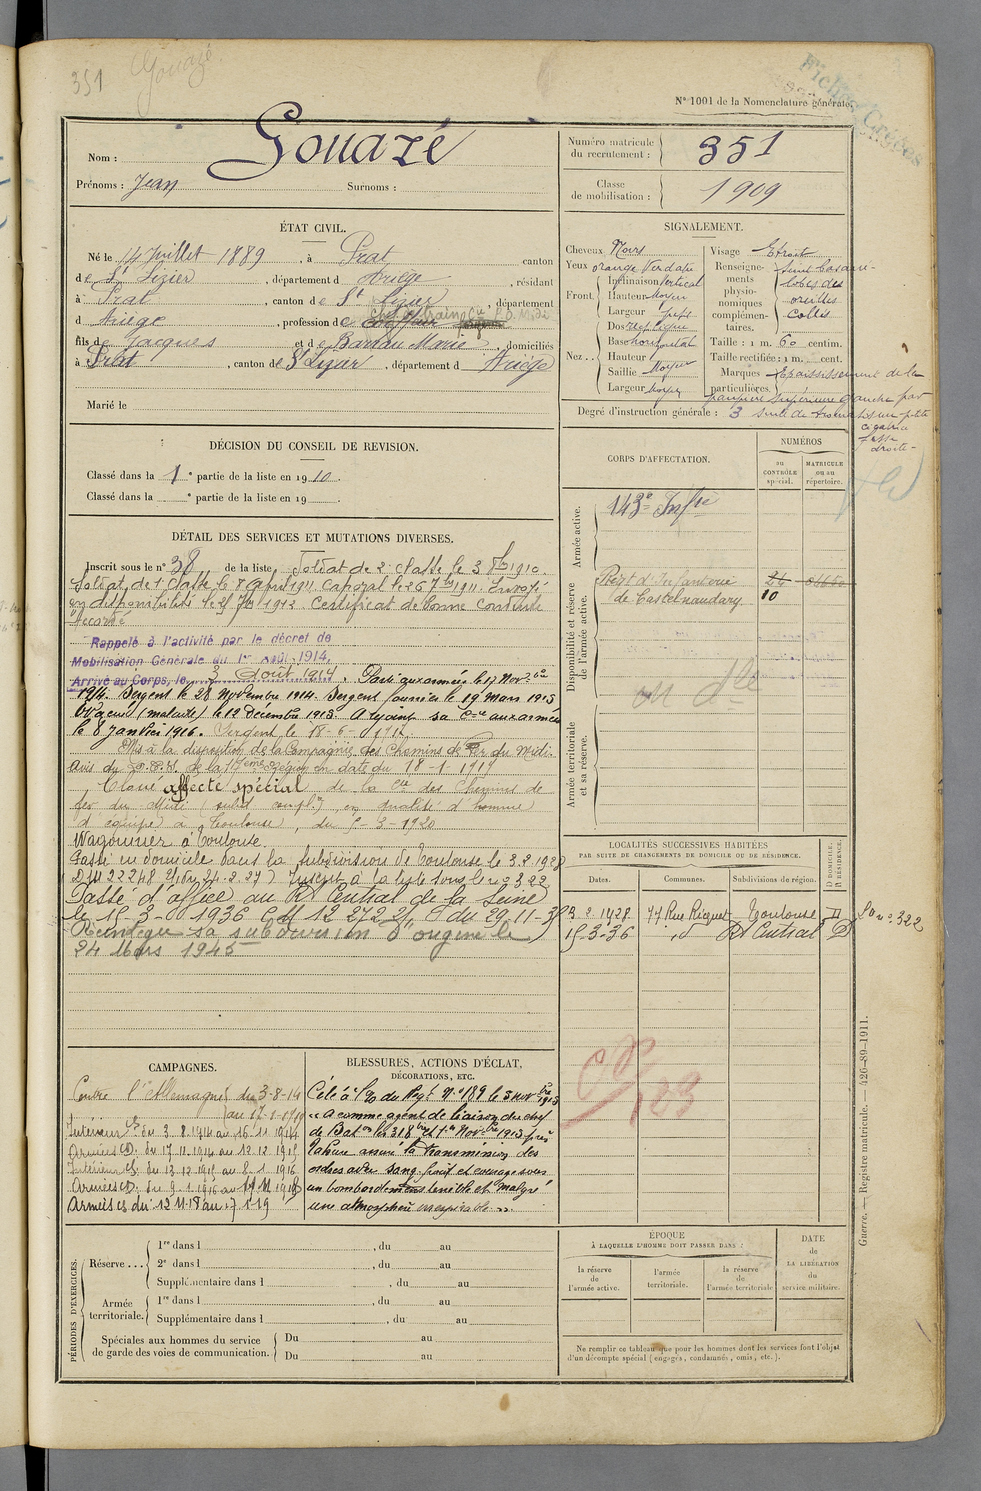 351
Gouazé
N° 1001 de la Nomenclature générale.
Fiches Créées
Nom : Gouazé
Prénoms : Jean Surnoms :
Numéro matricule du recrutement : 351
Classe de mobilisation : 1909
ÉTAT CIVIL.
Né le 14 Juillet 1889, à Prat canton
de St Lizier, département d Ariège, résidant
à Prat, canton de St Lizier, département
d Ariège, profession de
fils de Jacques et de Bardau Marie, domiciliés
à Prat, canton de St Lizier, département d Ariège
Marié le
SIGNALEMENT.
Cheveux Noirs
Yeux orange Verdatre
Front Inclinaison Vertical
Hauteur Moyen
Largeur
Nez Dos Rectiligne
Base horizontal
Hauteur
Saillie Moyen
Largeur Moyen
Visage Etroit
Renseignements physionomiques complémentaires.
lobes des
oreilles
collés
Taille : 1 m. 60 centim.
Taille rectifiée : 1 m. cent.
Marques particulières. Epaississement de la
paupière supérieure gauche par
suite de petite
cicatrice
fesse
droite
Degré d'instruction générale : 3
DÉCISION DU CONSEIL DE REVISION.
Classé dans la 1e partie de la liste en 1910.
Classé dans la e partie de la liste en 19
CORPS D'AFFECTATION.
NUMÉROS
AU CONTRÔLE spécial.
MATRICULE ou au répertoire.
Armée active.
143e Infie
Disponibilité et réserve de l'armée active.
Régt d'Infanterie
de Castelnaudary 10
Armée territoriale et sa réserve.
DÉTAIL DES SERVICES ET MUTATIONS DIVERSES.
Inscrit sous le n° 38 de la liste Soldat de 2e classe le 3 8bre 1910.
Soldat de 1e classe le 8 avril 1911. Caporal le 26 7bre 1911. Envoyé
en disponibilité le 25 7bre 1912. Certificat de bonne Conduite
Accordé
Rappelé à l'activité par le décret de
Mobilisation Générale du 1er Août 1914.
Arrivé au Corps, le 3 Août 1914. Parti aux armées le 17 Novbre
1914. Sergent le 28 Novembre 1914. Sergent fourrier le 19 mars 1915
Evacué (malade) le 12 Décembre 1915. A rejoint sa Cie aux armées
le 8 Janvier 1916. Sergent le 18-6-1917.
Mis à la disposition de la Compagnie des Chemins de Fer du Midi.
Avis du de la 17eme Région en date du 18-1-1919
Classé affecté spécial de la Cie des Chemins de
fer du Midi (subd compl.) en qualité d'homme
d'équipe à Toulouse, du 5-3-1920
Wagonnier à Toulouse.
Passé en domicile dans la subdivision de Toulouse le 3.2.1928
Inscrit à la liste sous le n° 322
Passé d'office au Rt Central de la Seine
le 15-3-1936 du 29-11-35
Réintégré sa subdivision d'origine le
24 Mars 1945
LOCALITÉS SUCCESSIVES HABITÉES
PAR SUITE DE CHANGEMENTS DE DOMICILE OU DE RÉSIDENCE.
Dates. Communes. Subdivisions de région. D DOMICILE. R RÉSIDENCE.
3.2.1928 77 Rue Ricquet Toulouse D Ln° 322
15-3-36 d° Rt Central D
CAMPAGNES.
Contre l'Allemagne du 3-8-14
au 17-1-1919
Intérieur CS. du 3.8.1914 au 16.11.1914
Armées CD. du 17.11.1914 au 12.12.1915
Intérieur CS. du 13.12.1915 au 8.1.1916
Armées CD. du 9.1.1916 au 11.11.1918
Armées CS du 12.11.18 au 17.1.19
BLESSURES, ACTIONS D'ÉCLAT,
DÉCORATIONS, ETC.
Cité à l'O. du Régt N° 189 le 5 novbre 1915
« A comme agent de liaison du chef
de Baton les 31 8bre et 1er Novbre 1915 près
Tahure assuré la transmission des
ordres avec sang froid et courage sous
un bombardement terrible et malgré
une atmosphère irrespirable. »
PÉRIODES D'EXERCICES.
Réserve... 1re dans l , du au
2e dans l , du au
Supplémentaire dans l , du au
Armée territoriale. 1re dans l , du au
Supplémentaire dans l , du au
Spéciales aux hommes du service de garde des voies de communication. Du au
Du au
ÉPOQUE
À LAQUELLE L'HOMME DOIT PASSER DANS :
la réserve de l'armée active.
l'armée territoriale.
la réserve de l'armée territoriale
DATE de LA LIBÉRATION du service militaire.
Ne remplir ce tableau que pour les hommes dont les services font l'objet
d'un décompte spécial (engagés, condamnés, omis, etc.).
Guerre. — Registre matricule. — 426-89-1911.